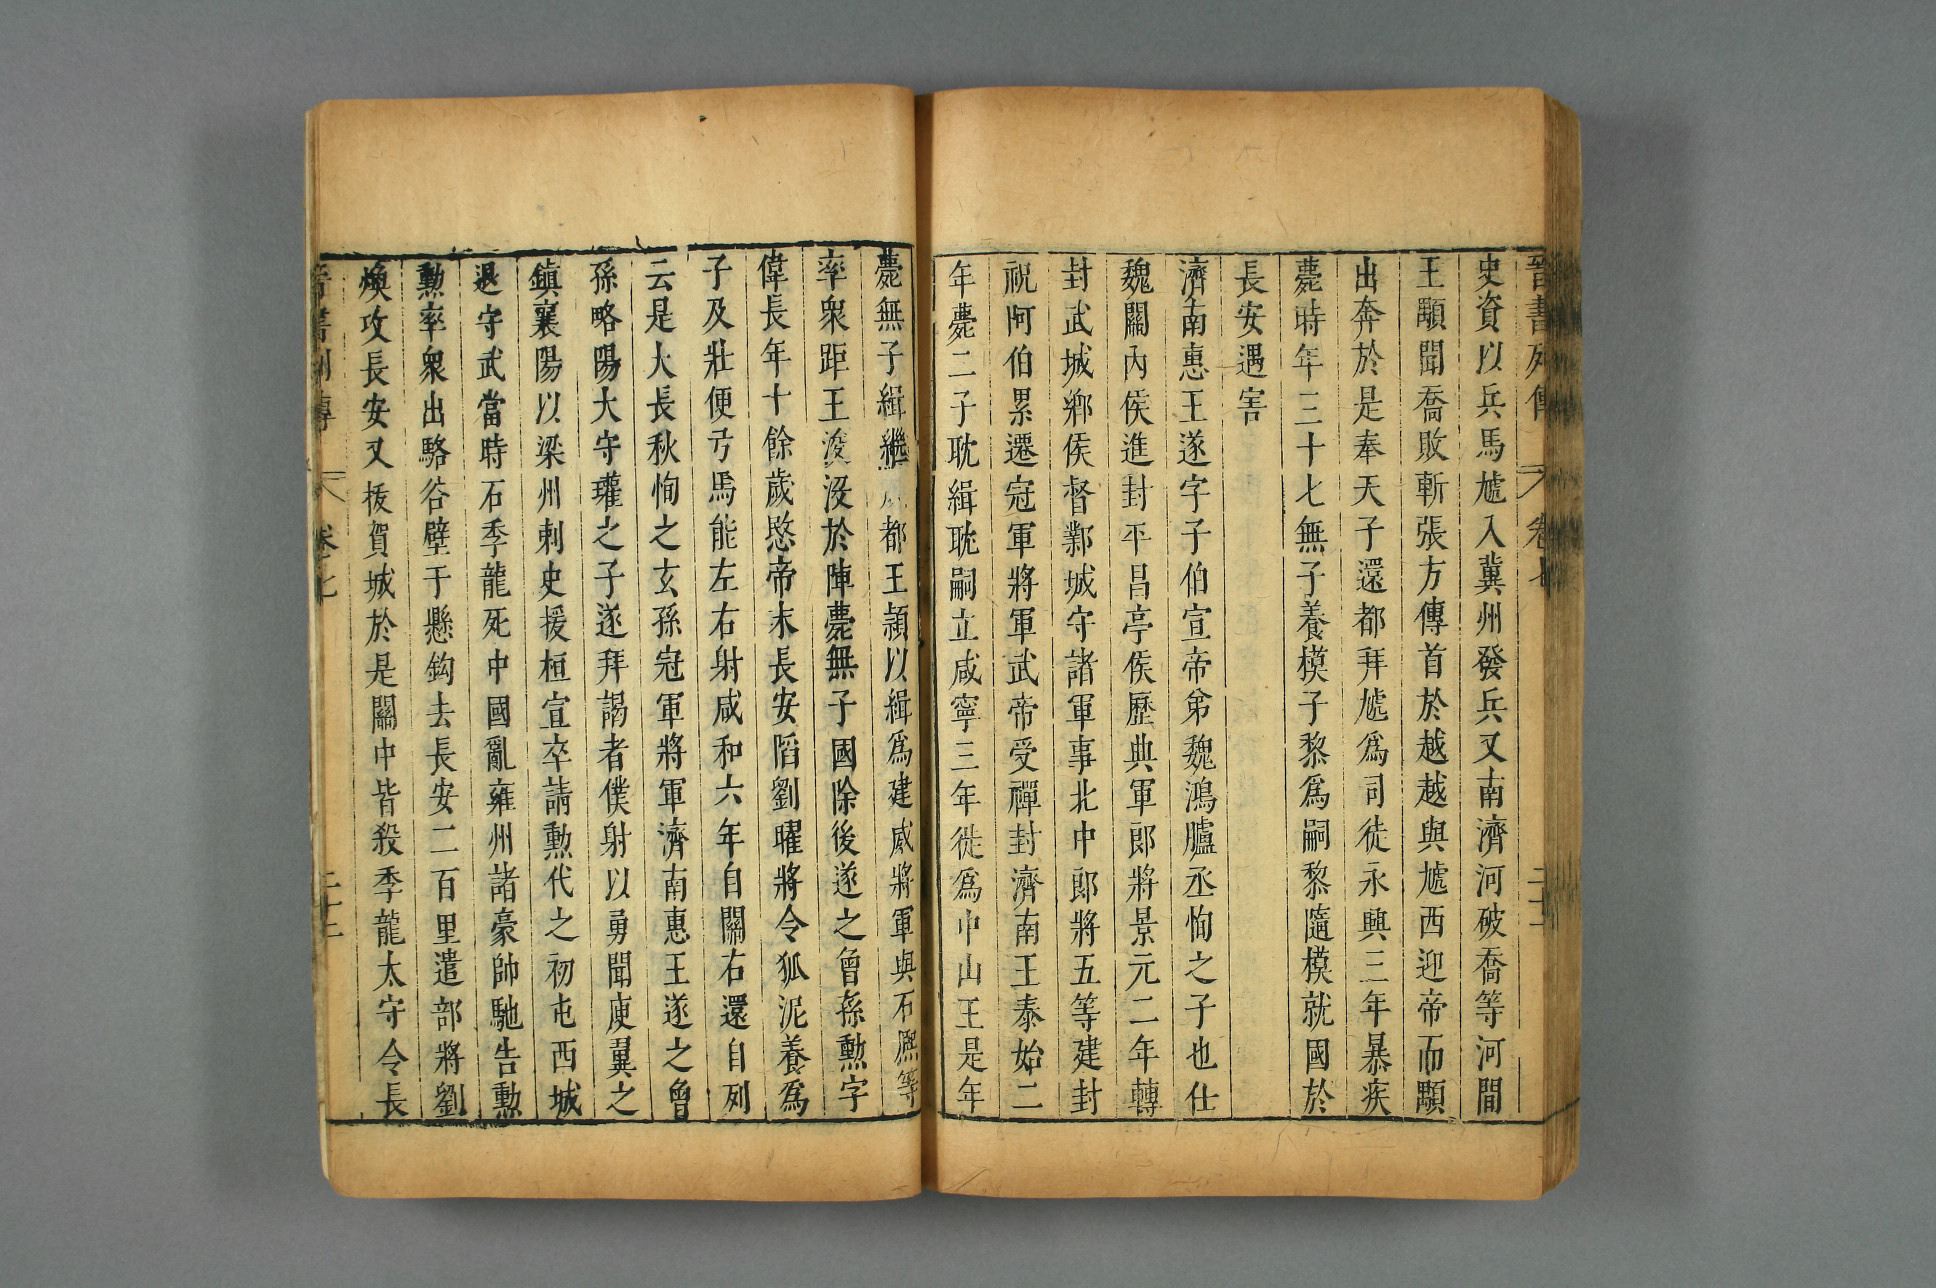 晉書列傳 卷七 二十一
史資以兵馬虓入冀州發兵又南濟河破喬等河間
王顒聞喬敗斬張方傳首於越越與虓西迎帝而顒
出奔於是奉天子還都拜虓爲司徒永興三年暴疾
薨時年三十七無子養模子黎爲嗣黎隨模就國於
長安遇害
濟南惠王遂字子伯宣帝弟魏鴻臚丞恂之子也仕
魏關內侯進封平昌亭侯歷典軍郎將景元二年轉
封武城鄉侯督鄴城守諸軍事北中郎將五等建封
祝阿伯累遷冠軍將軍武帝受禪封濟南王泰始二
年薨二子耽緝耽嗣立咸寧三年徙爲中山王是年
薨無子緝繼成都王穎以緝爲建威將軍與石熙等
率衆距王浚沒於陣薨無子國除後遂之曾孫勲字
偉長年十餘歲愍帝末長安陷劉曜將令狐泥養爲
子及壯便弓馬能左右射咸和六年自關右還自列
云是大長秋恂之玄孫冠軍將軍濟南惠王遂之曾
孫略陽大守瓘之子遂拜謁者僕射以勇聞庾翼之
鎮襄陽以梁州刺史援桓宣卒請勲代之初屯西城
退守武當時石季龍死中國亂雍州諸豪帥馳告勲
勲率衆出駱谷壁于懸鈎去長安二百里遣部將劉
煥攻長安又拔賀城於是關中皆殺季龍太守令長
晉書列傳 卷七 二十二